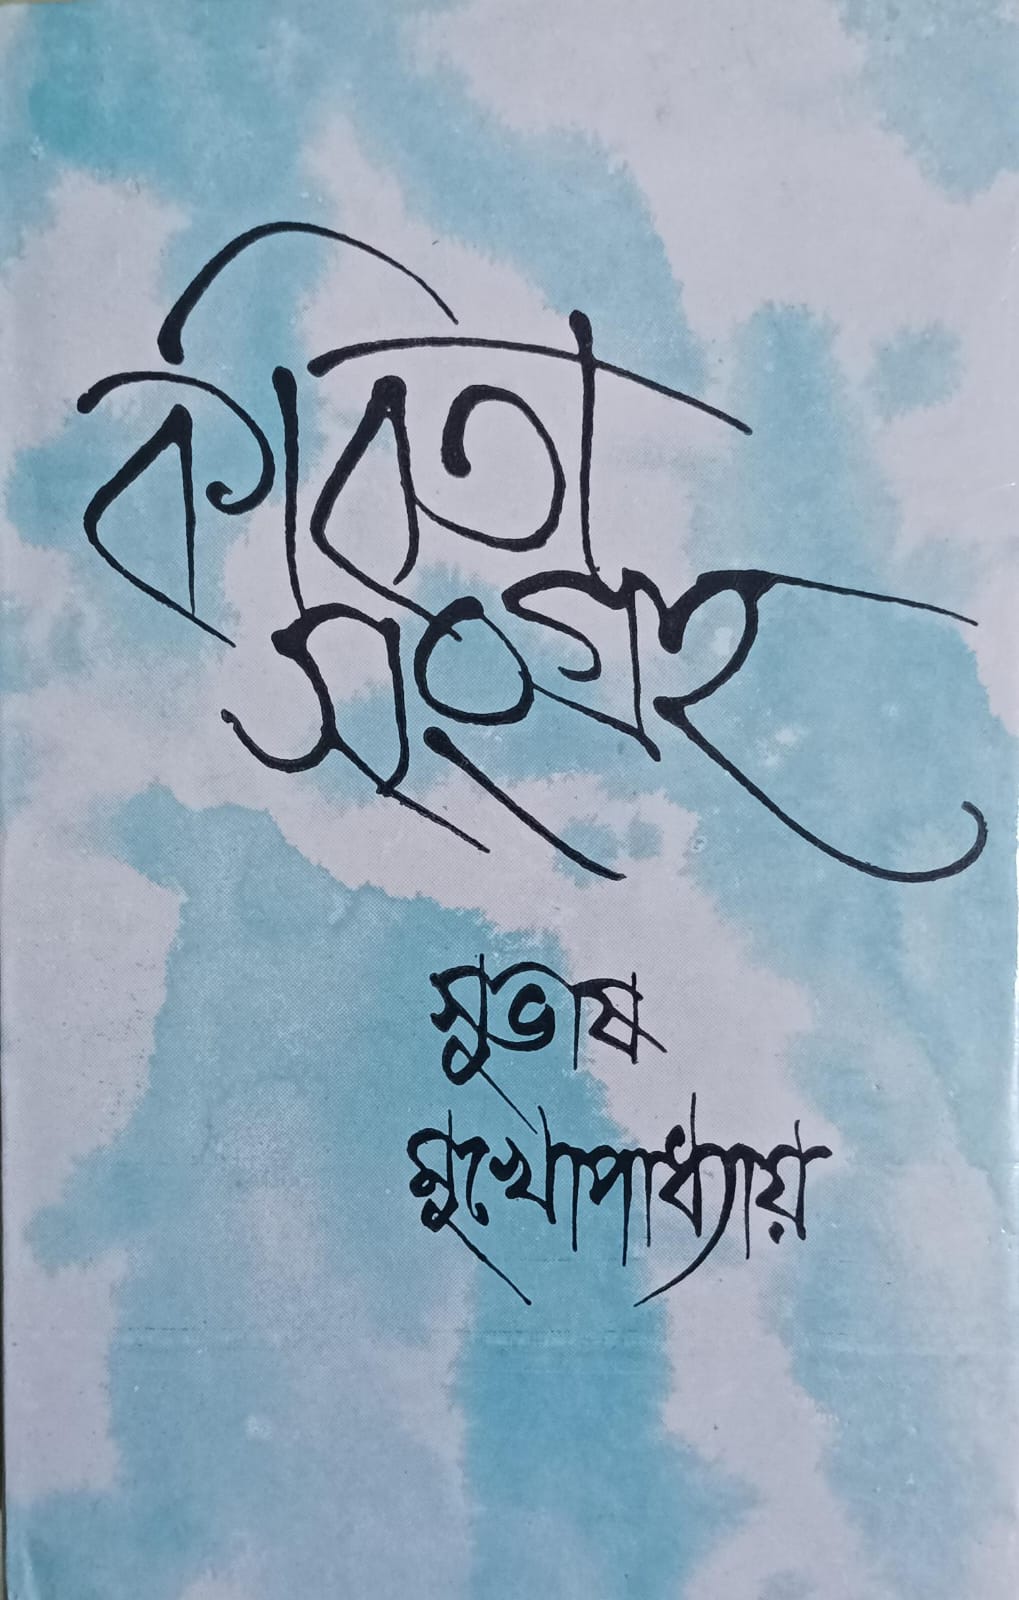 কবিতা
সংগ্রহ
সুভাষ
মুখোপাধ্যায়